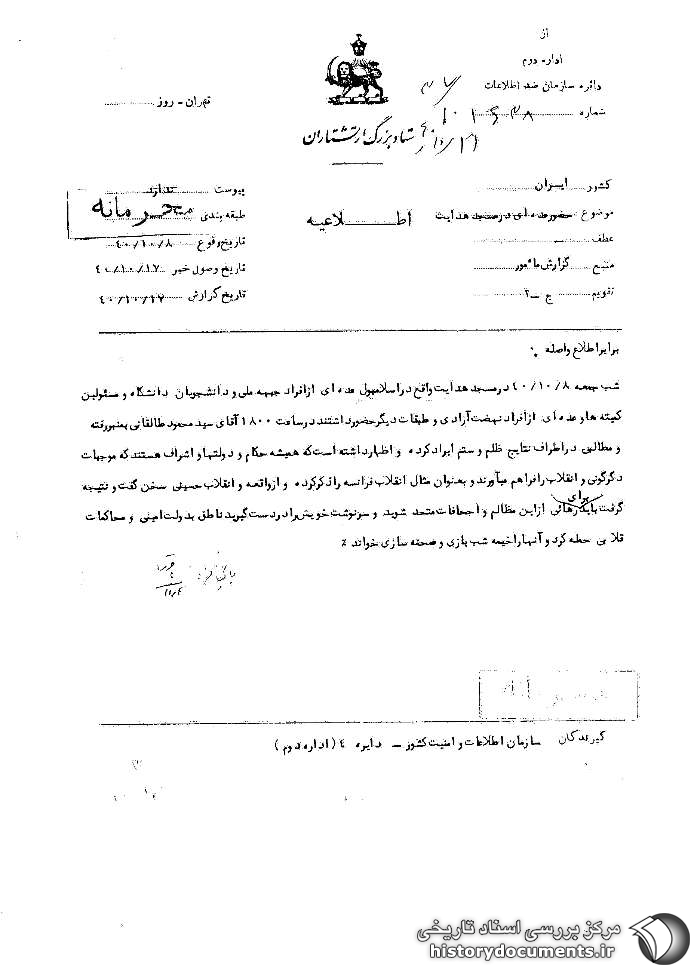 از
اداره دوم
دائره سازمان ضد اطلاعات
شماره
تهران - روز
ستاد بزرگ ارتشتاران
کشور ایران
پیوست ندارد
موضوع حضور عده ای در مسجد هدایت
اطلاعیه
طبقه بندی محرمانه
عطف
تاریخ وقوع ۴۰/۱۰/۸
منبع گزارش مأمور
تاریخ وصول خبر ۴۰/۱۰/۱۷
تقویم ج - ۲
تاریخ گزارش ۴۰/۱۰/۱۷
برابر اطلاع واصله
شب جمعه ۴۰/۱۰/۸ در مسجد هدایت واقع در اسلامبول عده ای از افراد جبهه ملی و دانشجویان دانشگاه و مسئولین
کمیته ها و عده ای از افراد نهضت آزادی و طبقات دیگر حضور داشتند در ساعت ۱۸۰۰ آقای سید محمود طالقانی بمنبر رفته
و مطالبی در اطراف نتایج ظلم و ستم ایراد کرده و اظهار داشته است که همیشه حکام و دولتها و اشراف هستند که موجبات
دگرگونی و انقلاب را فراهم میآورند و بعنوان مثال انقلاب فرانسه را ذکر کرده و از واقعه و انقلاب حسینی سخن گفت و نتیجه
گرفت باید برای رهائی از این مظالم و اجحافات متحد شوید و سرنوشت خویش را در دست گیرید ناطق بدولت امینی و محاکمات
قلابی حمله کرد و آنها را خیمه شب بازی و صحنه سازی خواند ٪
گیرندگان سازمان اطلاعات و امنیت کشور - دایره ۴ (اداره دوم)
مرکز بررسی اسناد تاریخی
historydocuments.ir